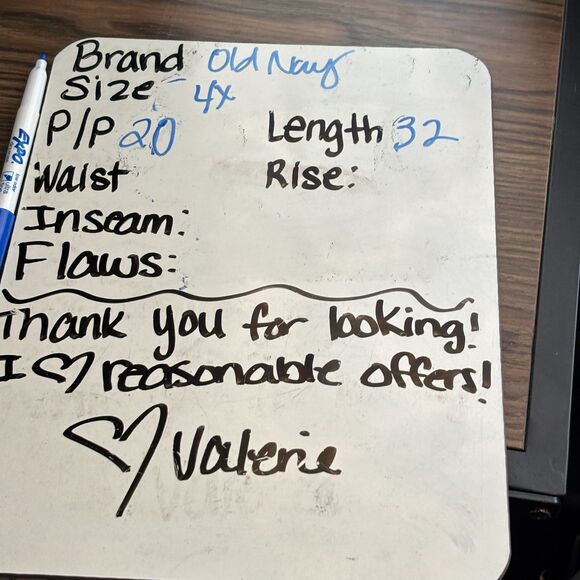 Brand Old Navy
Size - 4x
P/P 20 Length 32
Waist Rise:
Inseam:
Flaws:
Thank you for looking!
I ♡ reasonable offers!
♡ Valerie
EXPO